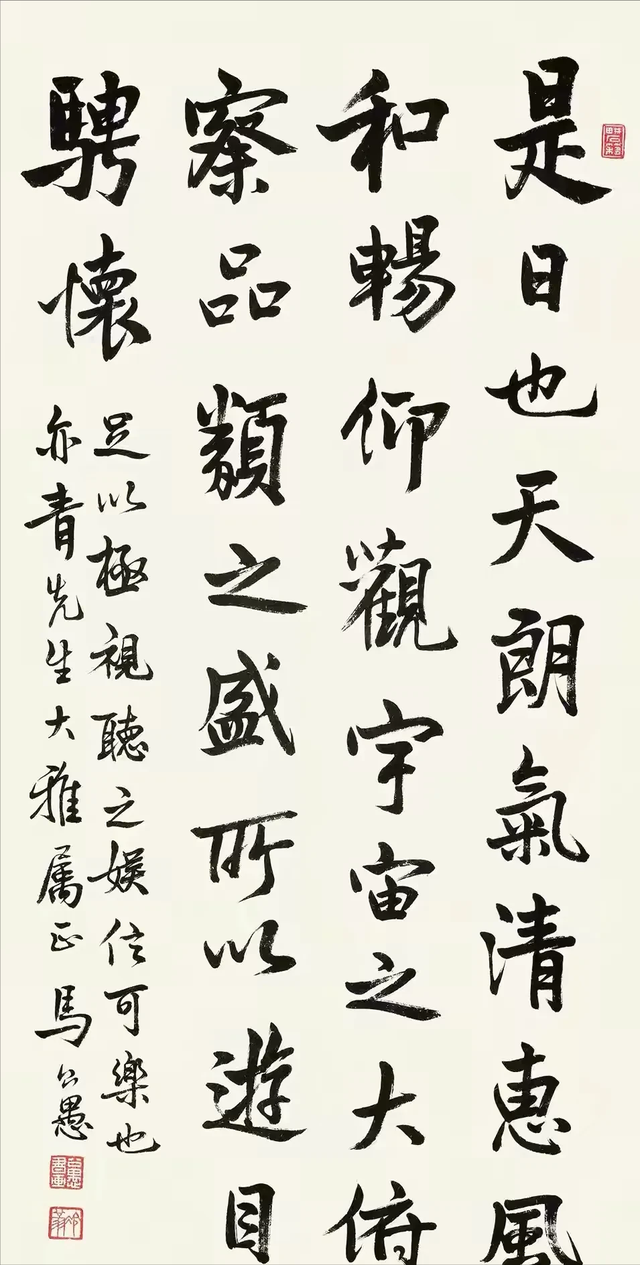 是日也天朗氣清惠風
和暢仰觀宇宙之大俯
察品類之盛所以遊目
騁懷
足以極視聽之娱信可樂也
亦青先生大雅属正馬公愚